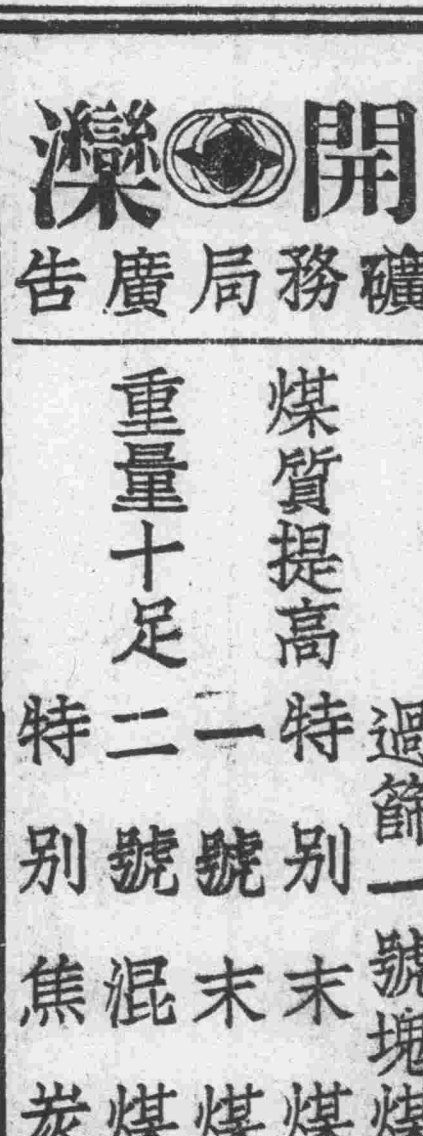 開灤
礦務局廣告
煤質提高
重量十足
過篩一號塊煤
特别末煤
一號末煤
二號混煤
特别焦炭